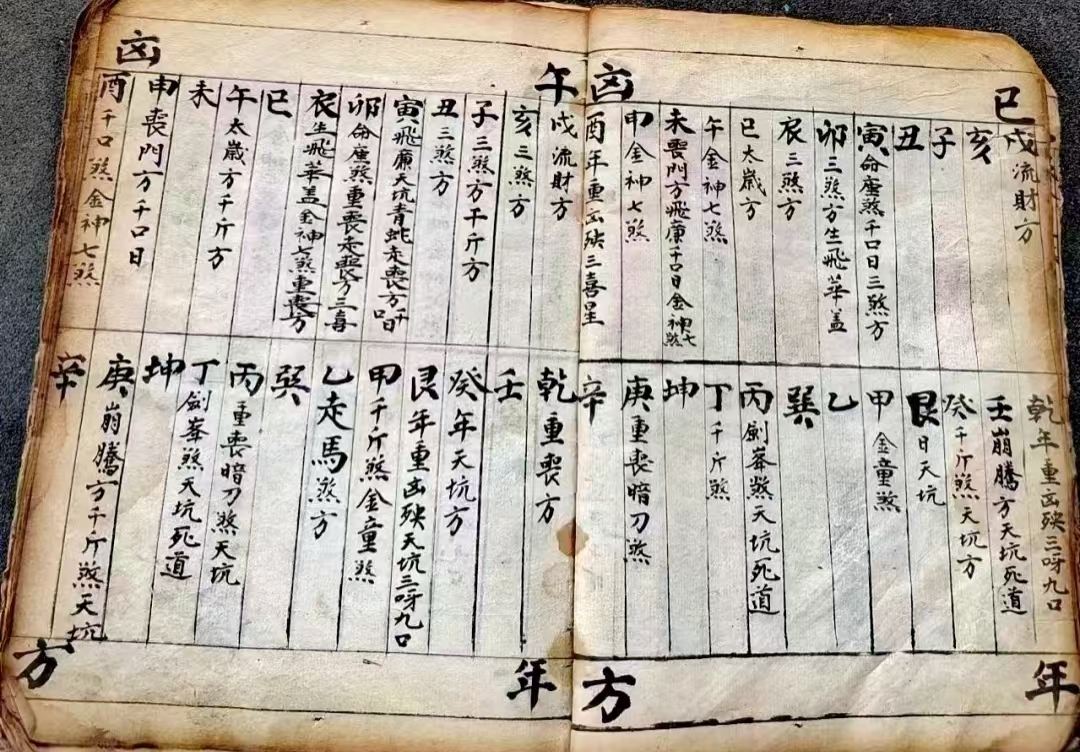 巳
凶
戌流財方
亥
子
丑
寅命座煞千口日三煞方
卯三煞方生飛華盖
辰三煞方
巳太歲方
午金神七煞
未喪門方飛廉千口日金神七煞
申金神七煞
酉年重凶殃三喜星
乾年重凶殃三呀九口
壬崩騰方天坑死道
癸千斤煞天坑方
艮日天坑
甲金童煞
乙
巽
丙劍峯煞天坑死道
丁千斤煞
坤
庚重喪暗刀煞
辛
年
方
午
凶
戌流財方
亥三煞方
子三煞方千斤方
丑三煞方
寅飛廉天坑青蛇走喪方千口日
卯命座煞重喪走喪方三喜
辰生飛華盖金神七煞重喪方
巳
午太歲方千斤方
未
申喪門方千口日
酉千口煞金神七煞
乾重喪方
壬
癸年天坑方
艮年重凶殃天坑三呀九口
甲千斤煞金童煞
乙走馬煞方
巽
丙重喪暗刀煞天坑
丁劍峯煞天坑死道
坤
庚崩騰方千斤煞天坑
辛
年
方